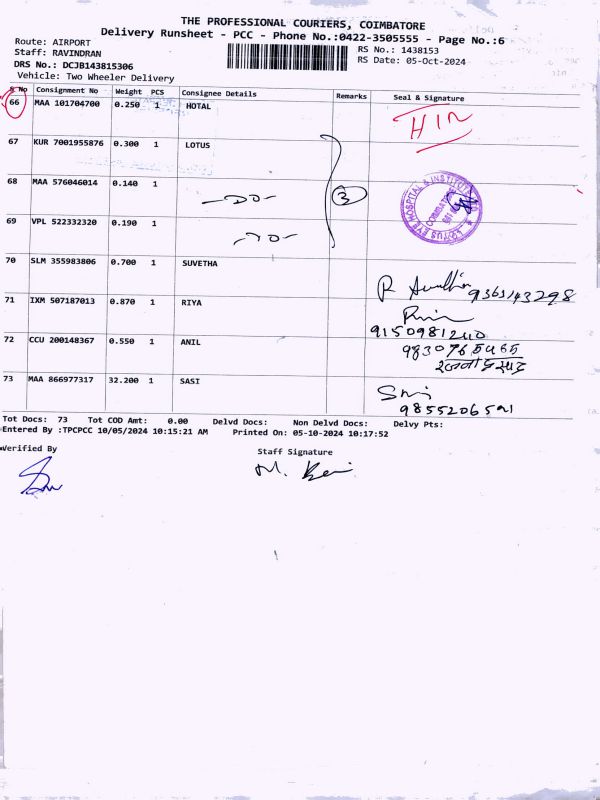 THE PROFESSIONAL COURIERS, COIMBATORE
Delivery Runsheet - PCC - Phone No.:0422-3505555 - Page No.:6
Route: AIRPORT
Staff: RAVINDRAN
RS No.: 1438153
DRS No.: DCJB143815306
RS Date: 05-Oct-2024
Vehicle: Two Wheeler Delivery
S No Consignment No Weight PCS Consignee Details Remarks Seal & Signature
66 MAA 101704700 0.250 1 HOTAL
67 KUR 7001955876 0.300 1 LOTUS
68 MAA 576046014 0.140 1 -DO- 3
69 VPL 522332320 0.190 1 -DO-
LOTUS EYE HOSPITAL & INSTITUTE
70 SLM 355983806 0.700 1 SUVETHA 9363143298
71 IXM 507187013 0.870 1 RIYA
9150981240
72 CCU 200148367 0.550 1 ANIL 9830765465
73 MAA 866977317 32.200 1 SASI
9855206591
Tot Docs: 73 Tot COD Amt: 0.00 Delvd Docs: Non Delvd Docs: Delvy Pts:
Entered By :TPCPCC 10/05/2024 10:15:21 AM Printed On: 05-10-2024 10:17:52
Verified By
Staff Signature